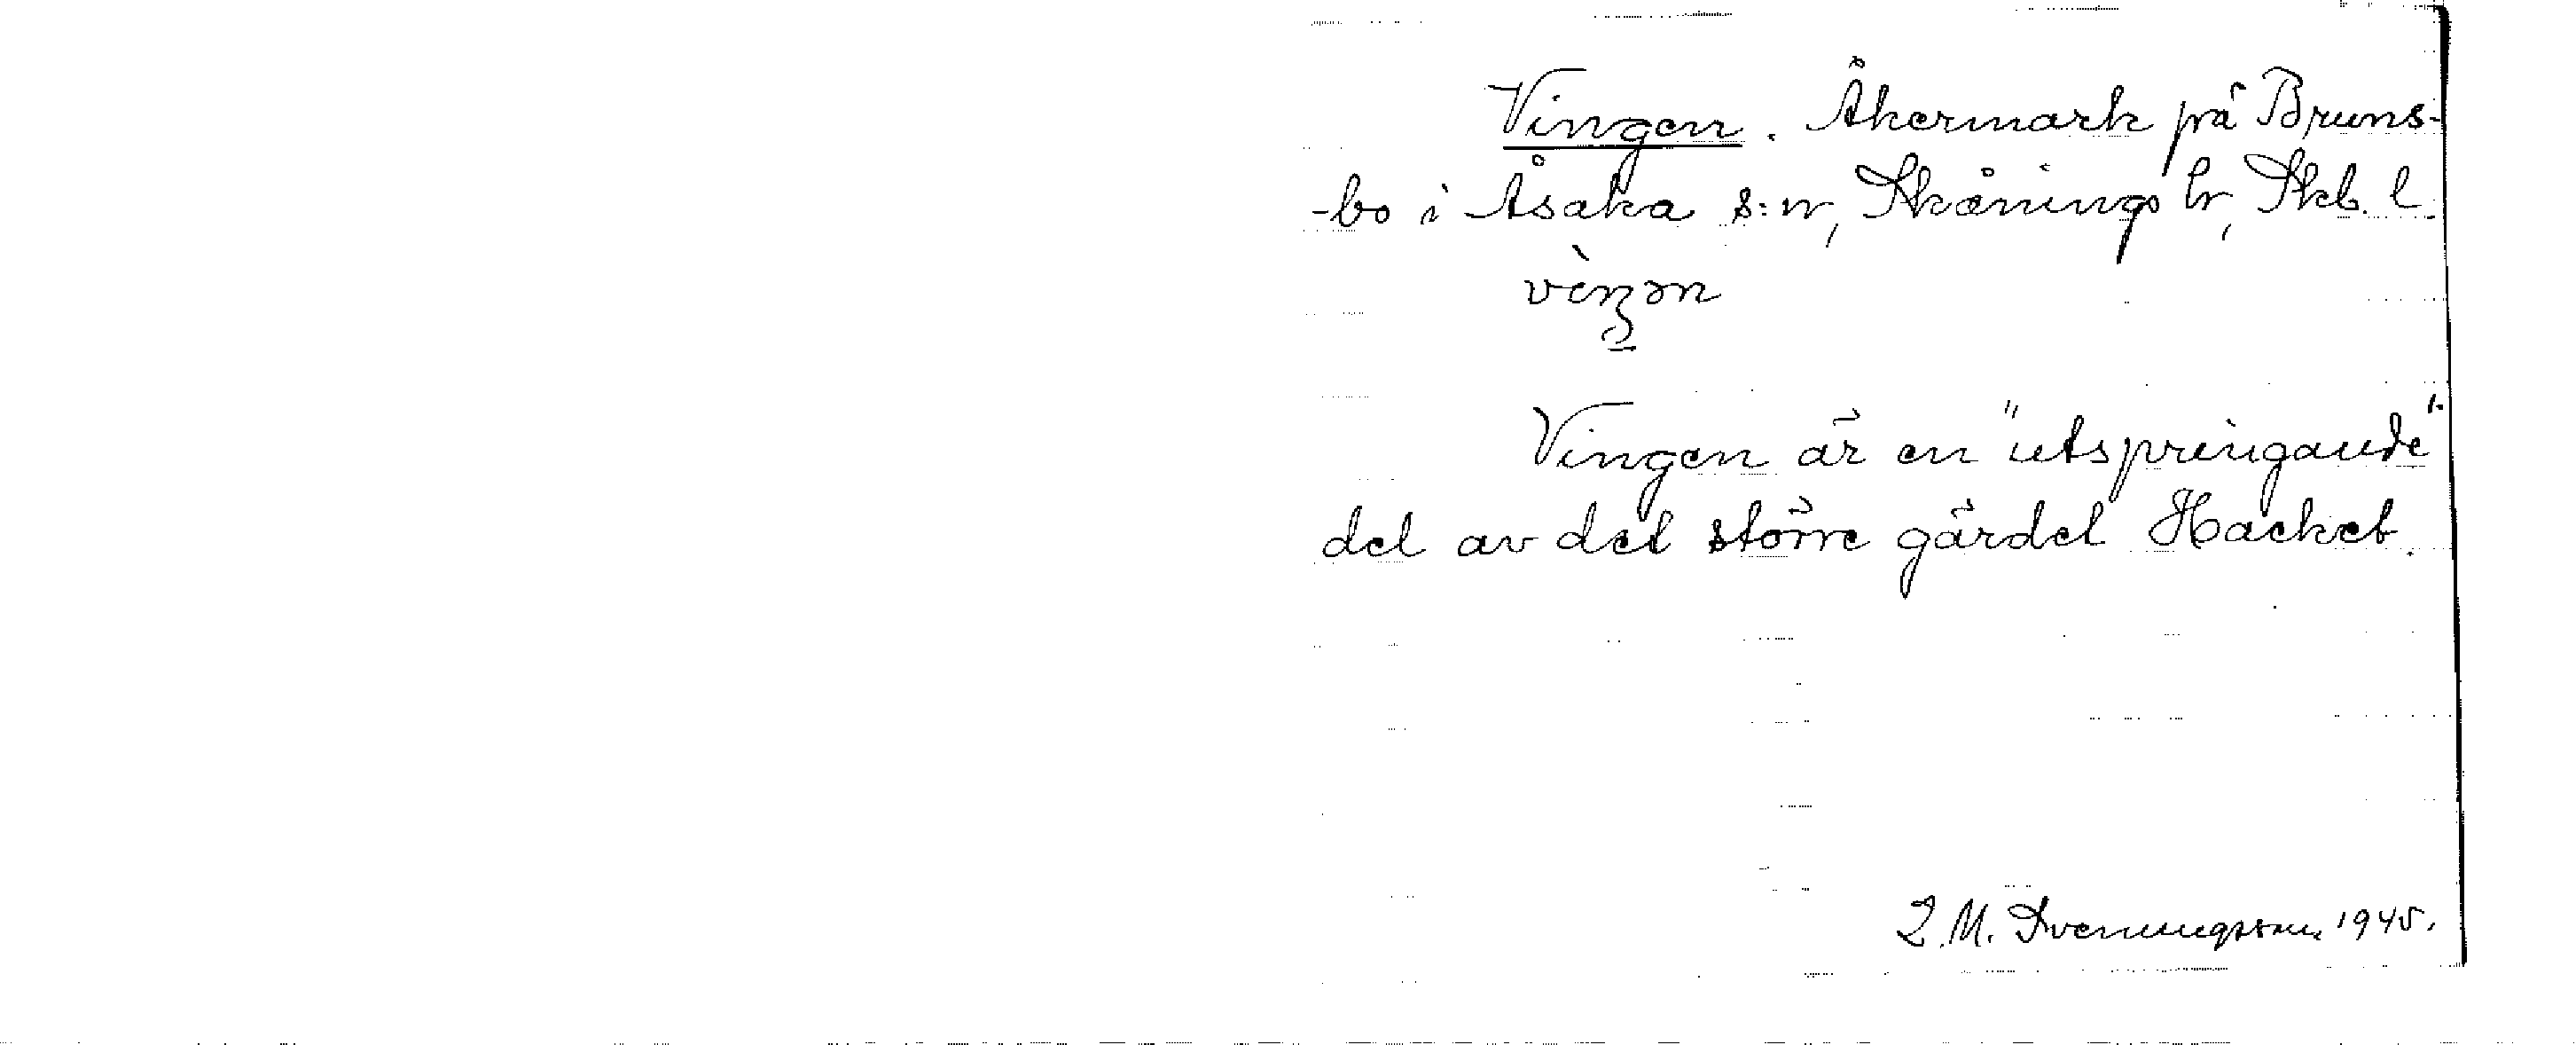 Vingen. Åkermark på Bruns-
-bo i Åsaka s:n, Skånings hr, Skb. l.
vèŋən
Vingen är en "utspringande"
del av det större gärdet Hacket.
L. M. Svenungsson 1945.